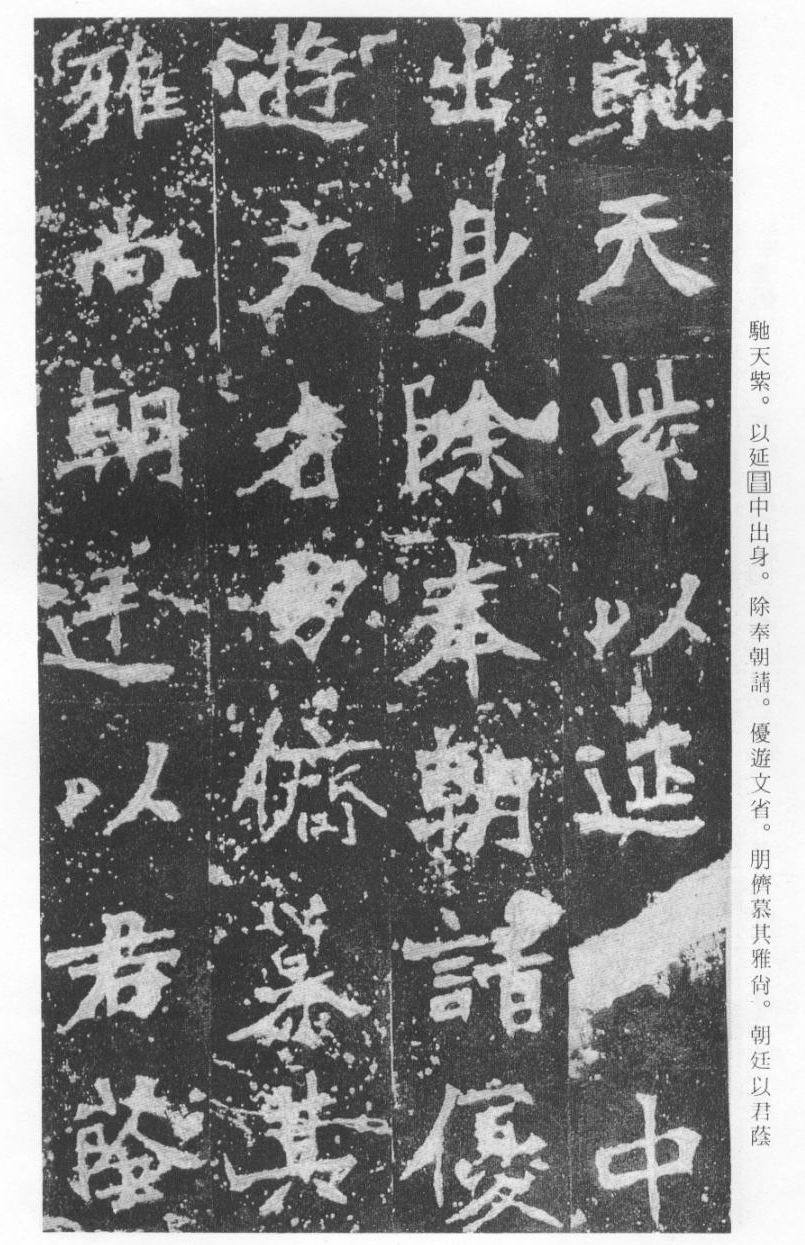 馳天紫以延中
出身除奉朝請優
遊文省朋儕慕其
雅尚朝廷以君蔭
馳天紫。以延昌中出身。除奉朝請。優遊文省。朋儕慕其雅尙。朝廷以君蔭